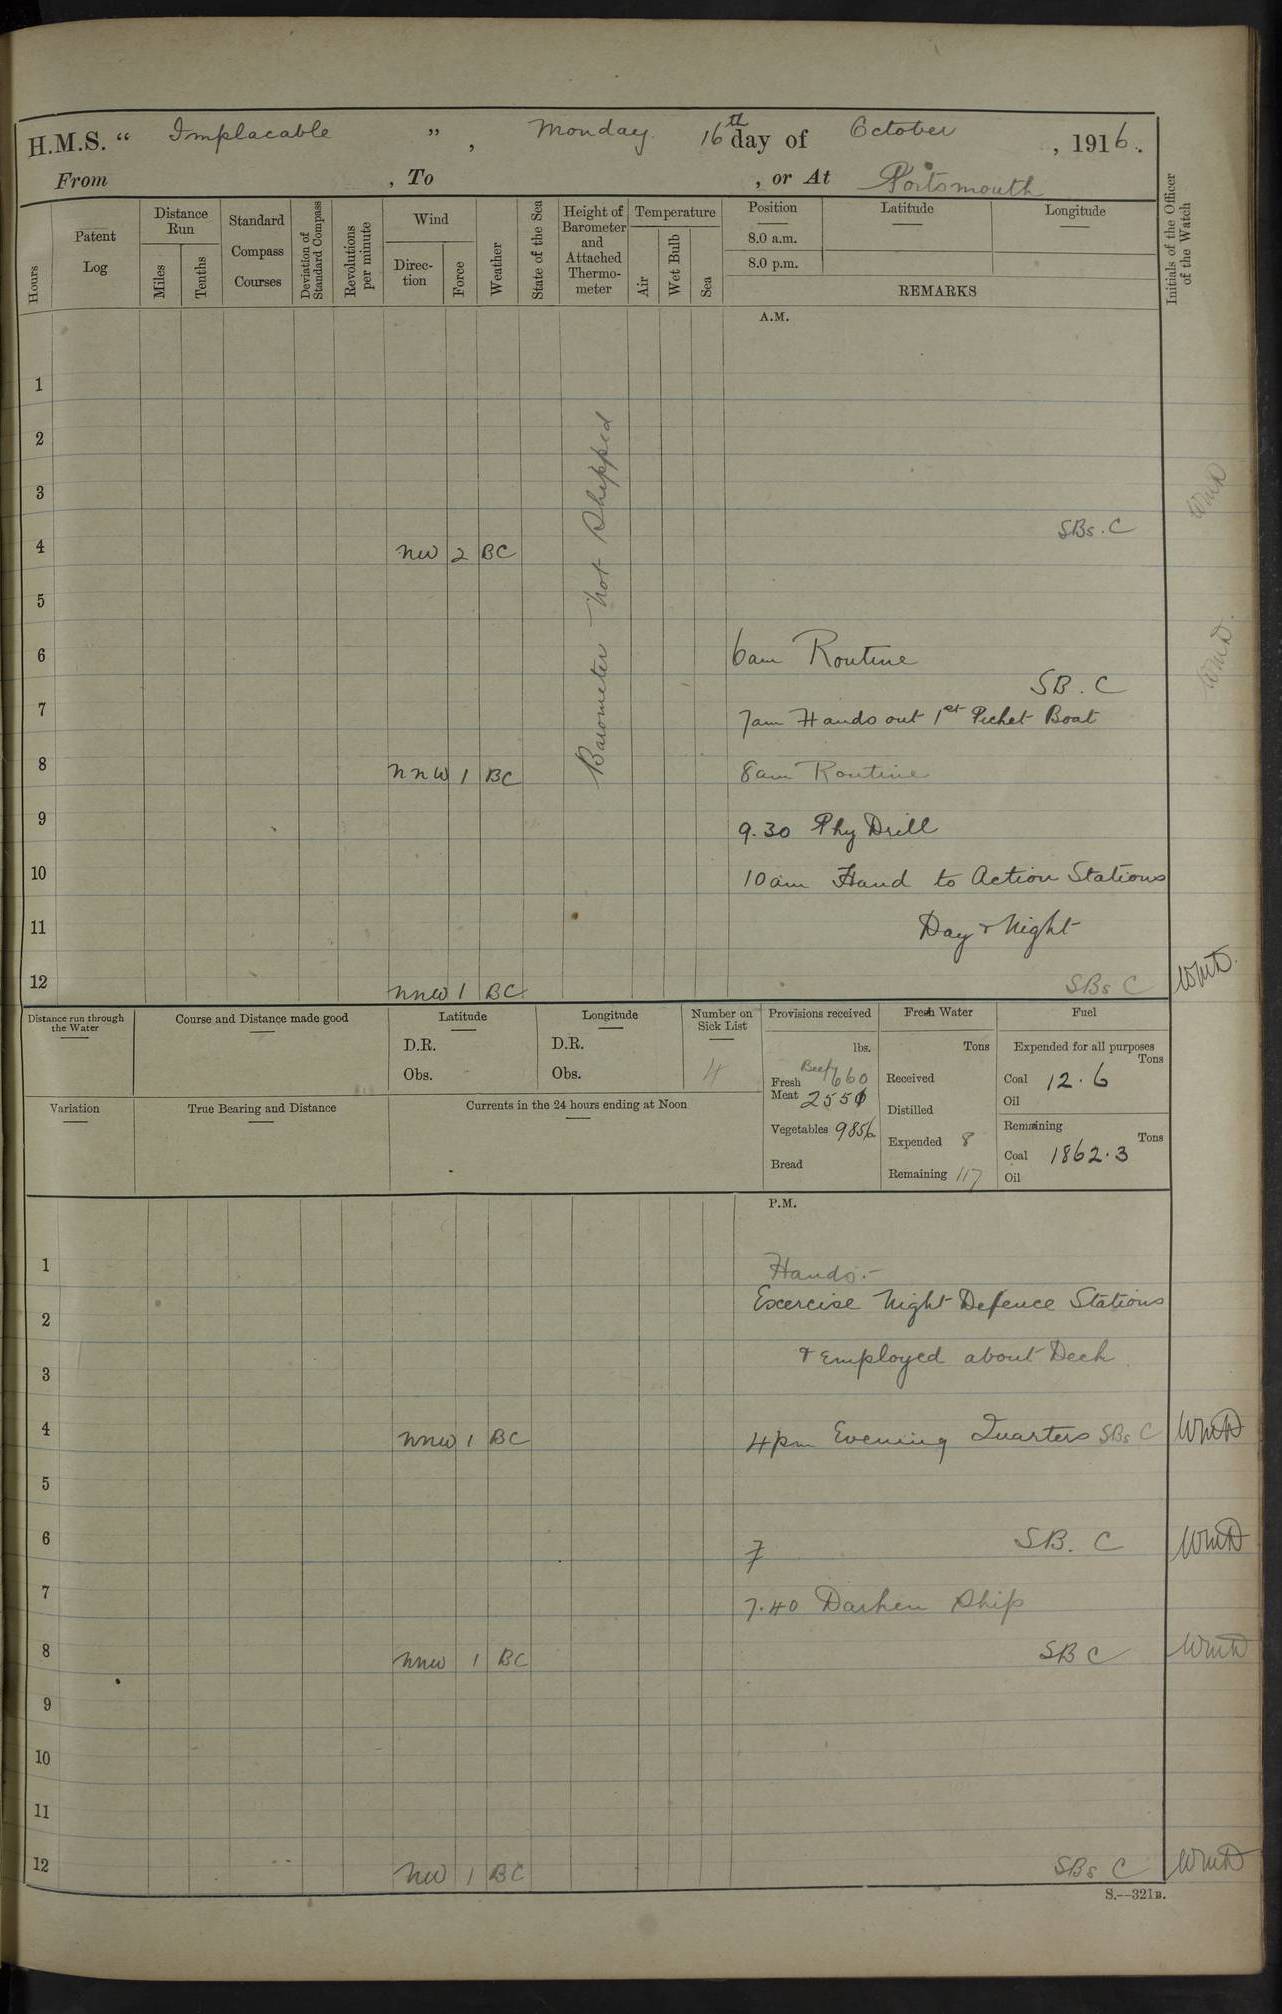 H.M.S. " Implacable ", Monday. 16th day of October, 1916.
From , To , or At Portsmouth
Hours
Patent Log
Distance Run
Miles
Tenths
Standard Compass Courses
Deviation of Standard Compass
Revolutions per minute
Wind
Direc-tion
Force
Weather
State of the Sea
Height of Barometer and Attached Thermo-meter
Temperature
Air
Wet Bulb
Sea
Position
8.0 a.m.
8.0 p.m.
Latitude
Longitude
REMARKS
Initials of the Officer of the Watch
A.M.
Barometer not shipped
1
2
3
WmD
SBs. C
4 NW 2 BC
5
6 6am Routine
WmD.
SB. C
7 7am Hands out 1st Picket Boat
8 NNW 1 BC 8am Routine
9 9.30 Phy Drill
10 10am Hand to Action Stations
11 Day & Night
12 NNW 1 BC SBs C WmD.
Distance run through the Water
Course and Distance made good
Latitude
D.R.
Obs.
Longitude
D.R.
Obs.
Number on Sick List
4
Provisions received
lbs.
Fresh Meat 660
2550
Vegetables 9856
Bread
Fresh Water
Tons
Received
Distilled
Expended 8
Remaining 117
Fuel
Expended for all purposes
Tons
Coal 12.6
Oil
Remaining
Tons
Coal 1862.3
Oil
Variation
True Bearing and Distance
Currents in the 24 hours ending at Noon
P.M.
1 Hands:-
2 Excercise Night Defence Stations
3 & Employed about Deck
4 NNW 1 BC 4pm Evening Quarters SBs C WmD
5
6 SB. C WmD
7
7 7.40 Darken Ship
8 NNW 1 BC SB C WmD
9
10
11
12 NW 1 BC SBs C WmD
S.—321B.